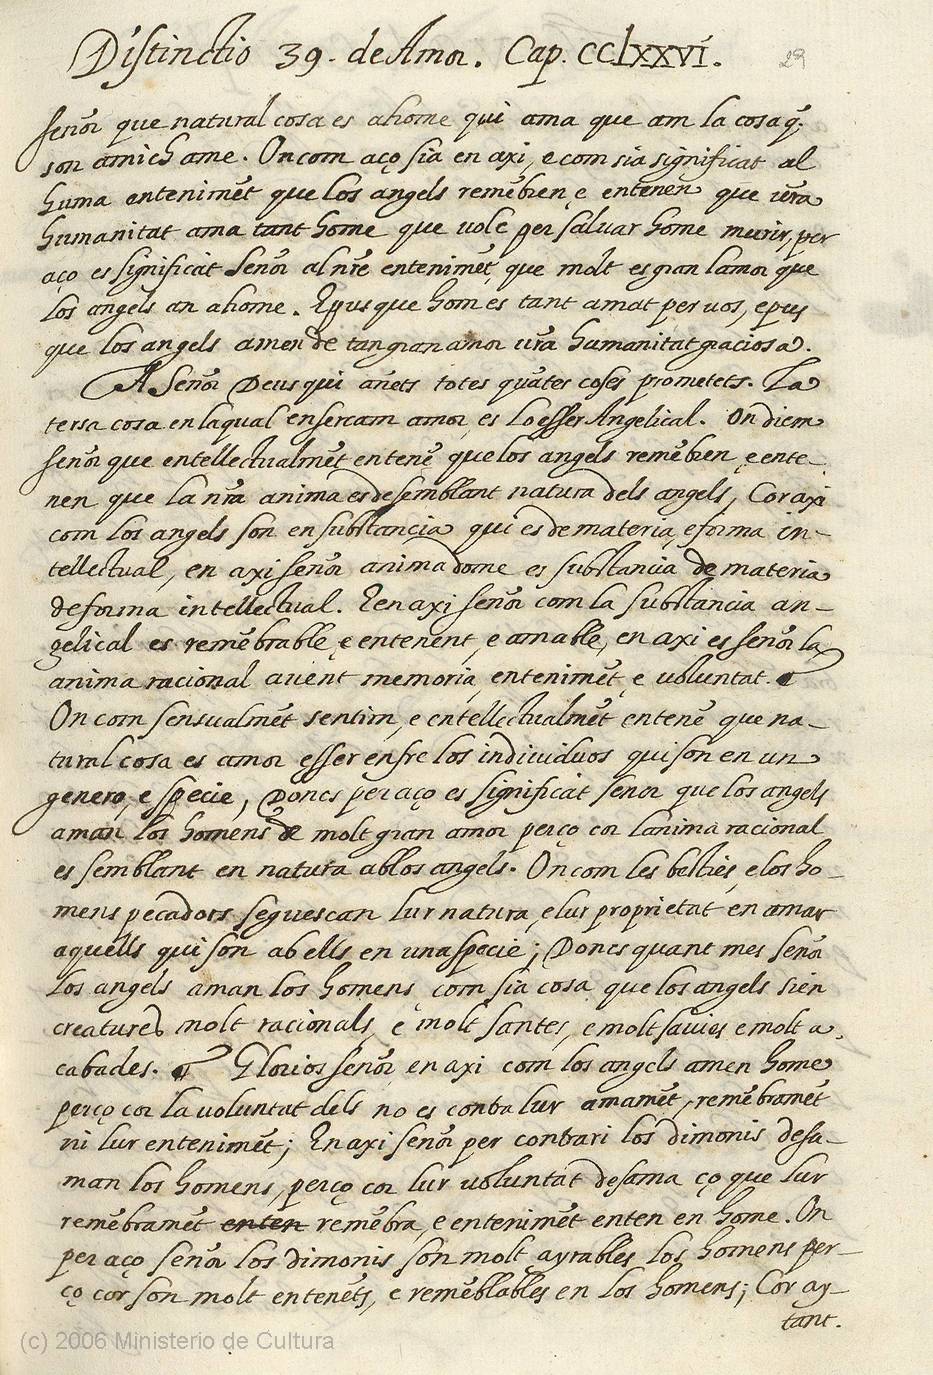 Distinctio 39. de Amor. Cap. CClxxvi. 29
señor que natural cosa es ahome qui ama que am la cosa q̃
son amich ame. On com aço sia en axi, e com sia significat al
huma entenimẽt que los angels remẽbren, e entenen que vr̃a
humanitat ama tant home que vole per salvar home murir, per
aço es significat Señor al nr̃e entenimẽt, que molt es gran lamor que
los angels an ahome. E pus que hom es tant amat per vos, e pus
que los angels amen de tan gran amor vr̃a humanitat graciosa.
A Señor Deus qui añets totes quãtes coses prometets. La
tersa cosa en laqual ensercam amor, es lo esser Angelical. On diem
señor que entellectualmẽt entenẽ que los angels remẽbren, e ente-
nen que la nr̃a anima es de semblant natura dels angels, Cor axi
com los angels son en substancia qui es de materia, e forma in-
tellectual, en axi señor anima dome es substancia de materia
de forma intellectual. E en axi señor com la substancia an-
gelical es remẽbrable, e entenent, e amable, en axi es señor la
anima racional avent memoria, entenimẽt, e voluntat. ¶
On com sensualmẽt sentim, e entellectualmẽt entenẽ que na-
tural cosa es amor esser enfre los individuos qui son en un
genero, e specie, Doncs per aço es significat senor que los angels
aman los homens de molt gran amor perço cor lanima racional
es semblant en natura ab los angels. On com les besties, e los ho-
mens pecadors seguescan lur natura, e lur proprietat en amar
aquells qui son ab ells en una specie; Doncs quant mes señor
los angels aman los homens, com sia cosa que los angels sien
creatures molt racionals, e molt santes, e molt savies e molt a-
cabades. ¶ Glorios señor, en axi com los angels amen home
perço cor la voluntat dels no es contra lur amamẽt, remẽbramẽt
ni lur entenimẽt; En axi señor per contrari los dimonis desa-
man los homens, perço cor lur voluntat desama ço que lur
remẽbramẽt enten remẽbra, e entenimẽt enten en home. On
per aço señor los dimonis son molt ayrables los homens per-
ço cor son molt entenẽts, e remẽblables en los homens; Cor ay-
tant.
(c) 2006 Ministerio de Cultura